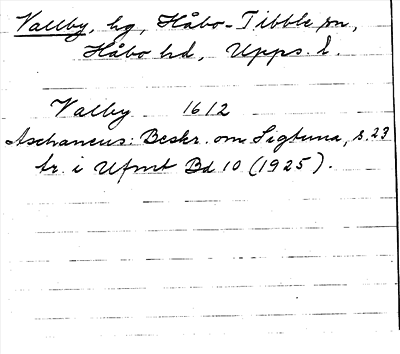 Vallby, hg, Håbo-Tibble sn,
Håbo hd, Upps. l.
Valby 1612
Aschaneus: Beskr. om Sigtuna, s. 23
tr. i Ufmt Bd 10 (1925).